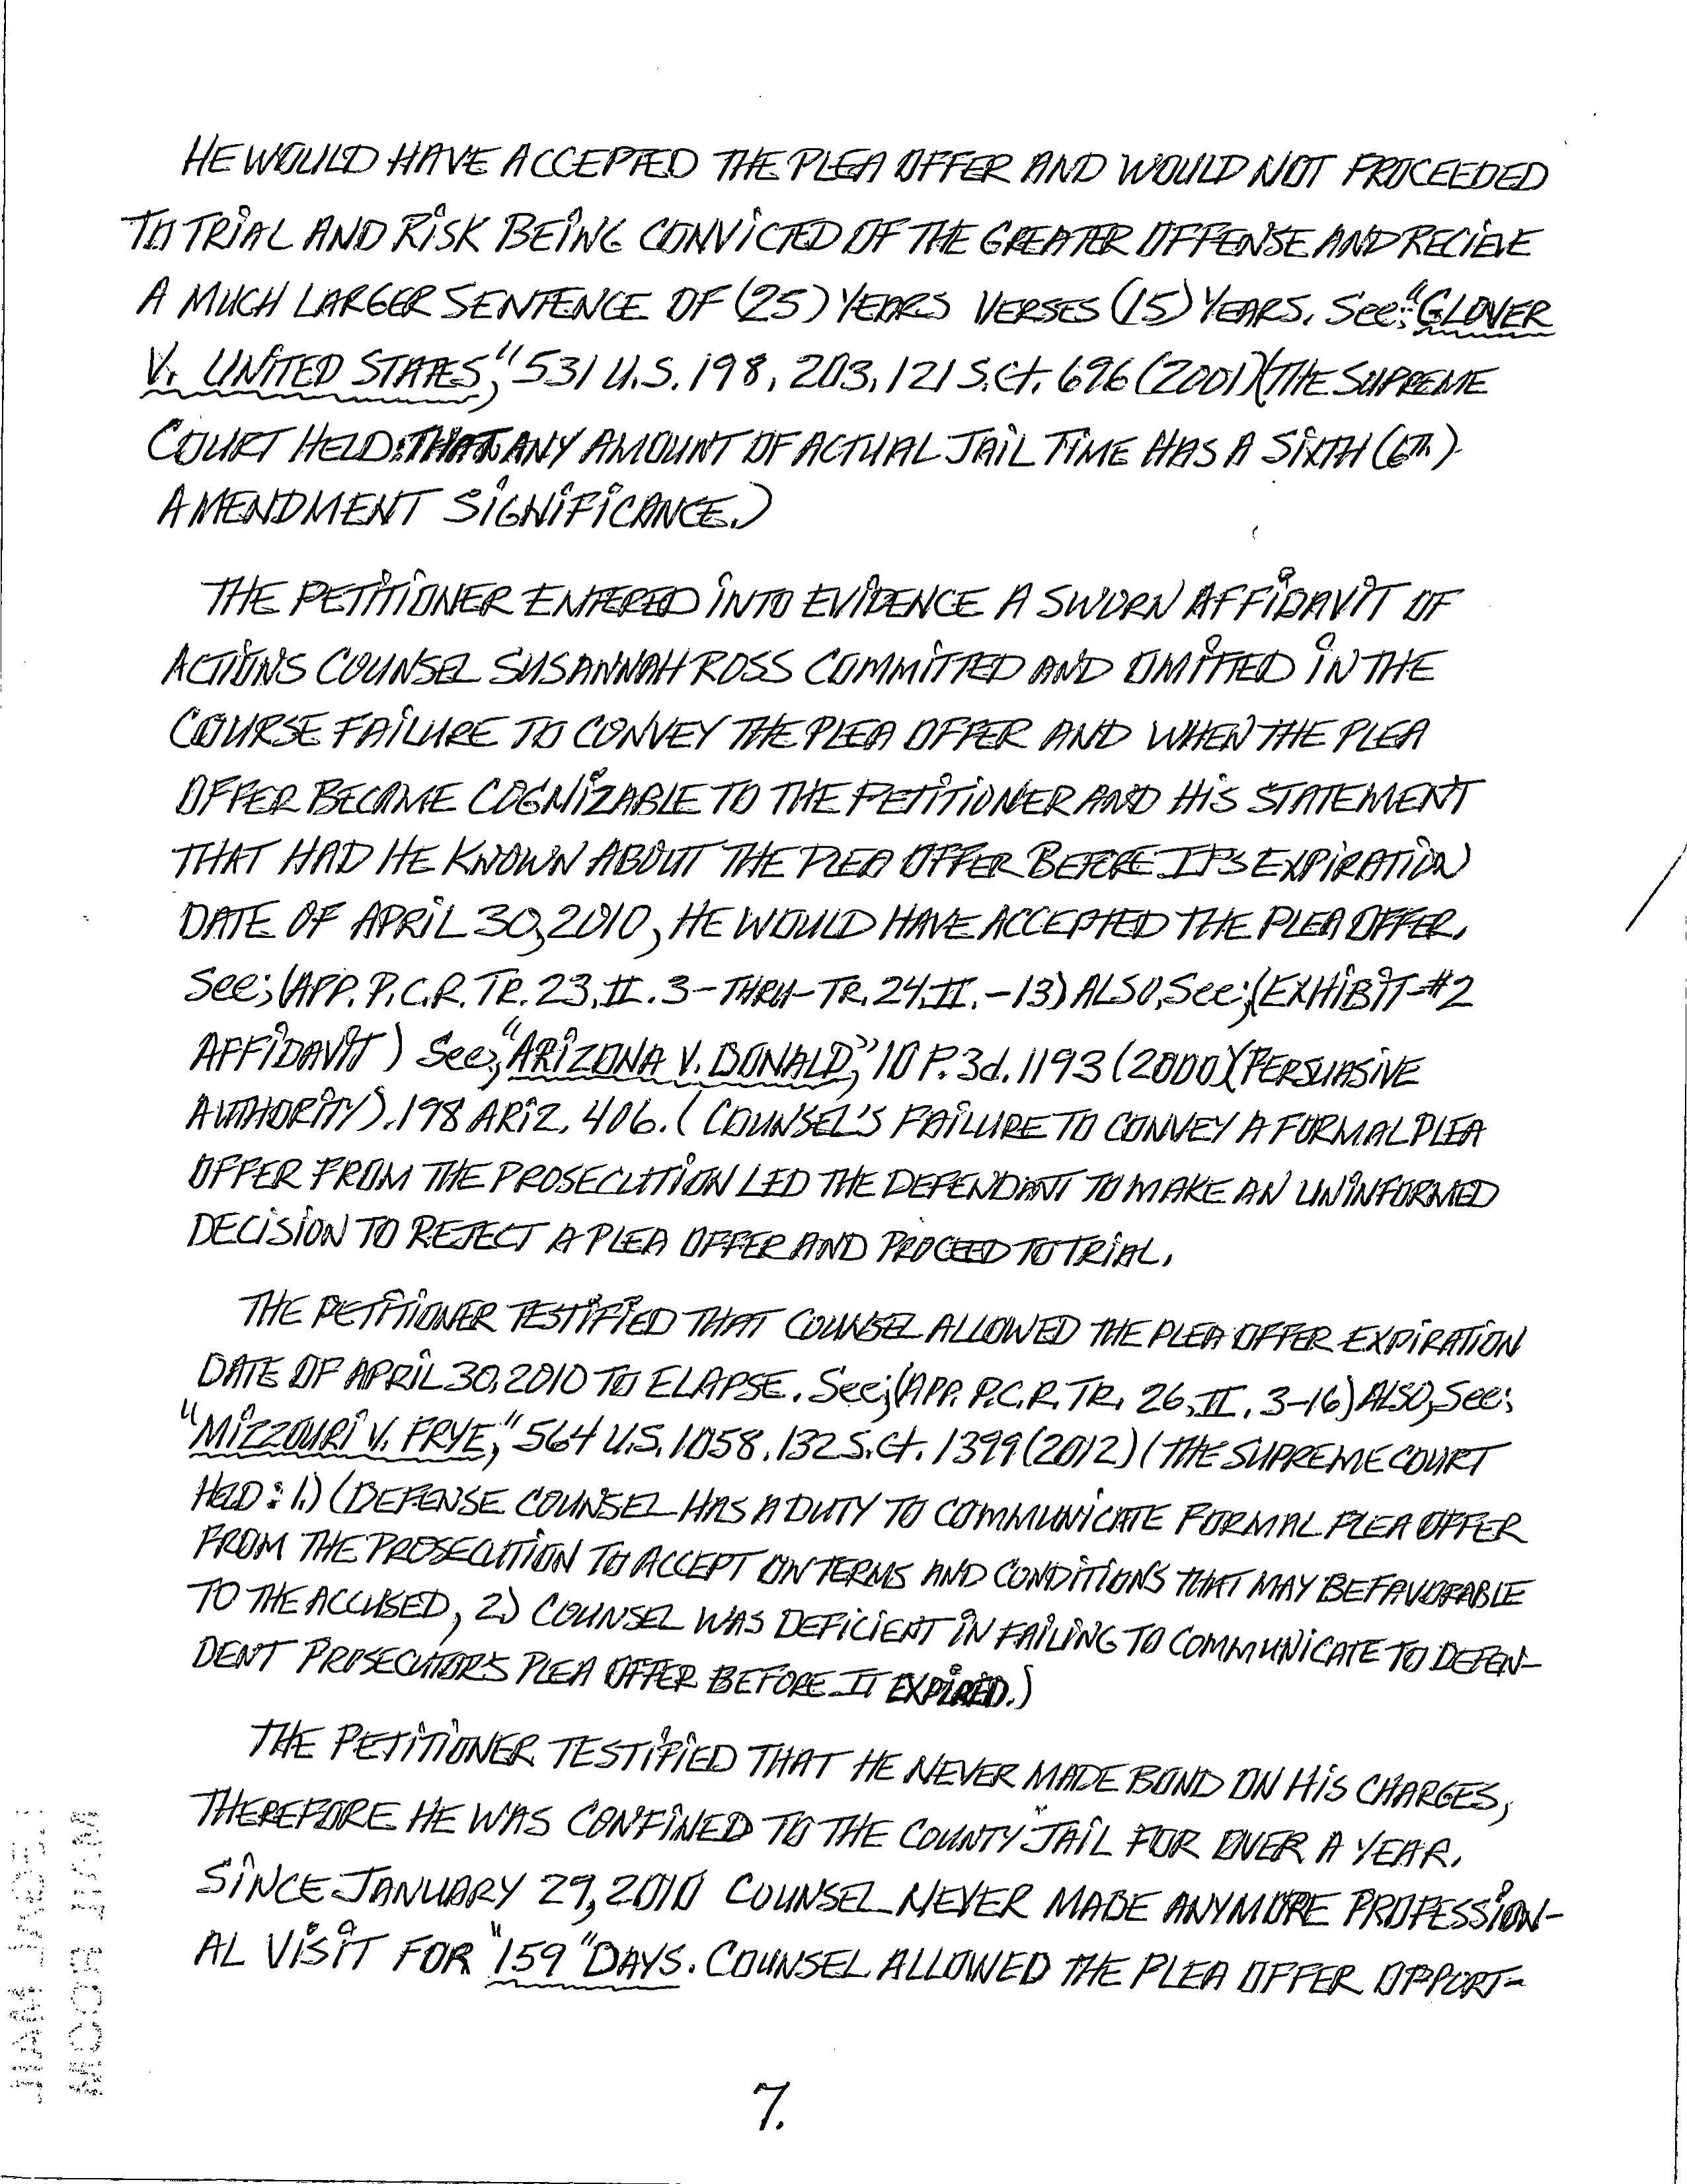 HE WOULD HAVE ACCEPTED THE PLEA OFFER AND WOULD NOT PROCEEDED
TO TRIAL AND RISK BEING CONVICTED OF THE GREATER OFFENSE AND RECIEVE
A MUCH LARGER SENTENCE OF (25) YEARS VERSES (15) YEARS. See: "GLOVER
V. UNITED STATES," 531 U.S. 198, 203, 121 S.Ct. 696 (2001)(THE SUPREME
COURT HELD: THAT ANY AMOUNT OF ACTUAL JAIL TIME HAS A SIXTH (6th)
AMENDMENT SIGNIFICANCE.)
THE PETITIONER ENTERED INTO EVIDENCE A SWORN AFFIDAVIT OF
ACTIONS COUNSEL SUSANNAH ROSS COMMITTED AND OMITTED IN THE
COURSE FAILURE TO CONVEY THE PLEA OFFER AND WHEN THE PLEA
OFFER BECAME COGNIZABLE TO THE PETITIONER AND HIS STATEMENT
THAT HAD HE KNOWN ABOUT THE PLEA OFFER BEFORE IT'S EXPIRATION
DATE OF APRIL 30, 2010, HE WOULD HAVE ACCEPTED THE PLEA OFFER.
See; (APP. P.C.R. TR. 23, II. 3-THRU-TR. 24, II. -13) ALSO, See; (EXHIBIT-#2
AFFIDAVIT) See; "ARIZONA V. DONALD," 10 P. 3d. 1193 (2000)(PERSUASIVE
AUTHORITY). 198 ARIZ. 406. (COUNSEL'S FAILURE TO CONVEY A FORMAL PLEA
OFFER FROM THE PROSECUTION LED THE DEFENDANT TO MAKE AN UNINFORMED
DECISION TO REJECT A PLEA OFFER AND PROCEED TO TRIAL.
THE PETITIONER TESTIFIED THAT COUNSEL ALLOWED THE PLEA OFFER EXPIRATION
DATE OF APRIL 30, 2010 TO ELAPSE. See; (APP. P.C.R. TR. 26, II. 3-16) ALSO, See:
"MIZZOURI V. FRYE," 564 U.S. 1058. 132 S.Ct. 1399 (2012) (THE SUPREME COURT
HELD: 1.) (DEFENSE COUNSEL HAS A DUTY TO COMMUNICATE FORMAL PLEA OFFER
FROM THE PROSECUTION TO ACCEPT ON TERMS AND CONDITIONS THAT MAY BE FAVORABLE
TO THE ACCUSED, 2.) COUNSEL WAS DEFICIENT IN FAILING TO COMMUNICATE TO DEFEN-
DENT PROSECUTORS PLEA OFFER BEFORE IT EXPIRED.)
THE PETITIONER TESTIFIED THAT HE NEVER MADE BOND ON HIS CHARGES,
THEREFORE HE WAS CONFINED TO THE COUNTY JAIL FOR OVER A YEAR.
SINCE JANUARY 29, 2010 COUNSEL NEVER MADE ANYMORE PROFESSION-
AL VISIT FOR "159" DAYS. COUNSEL ALLOWED THE PLEA OFFER OPPORT-
7.
MAIL ROOM